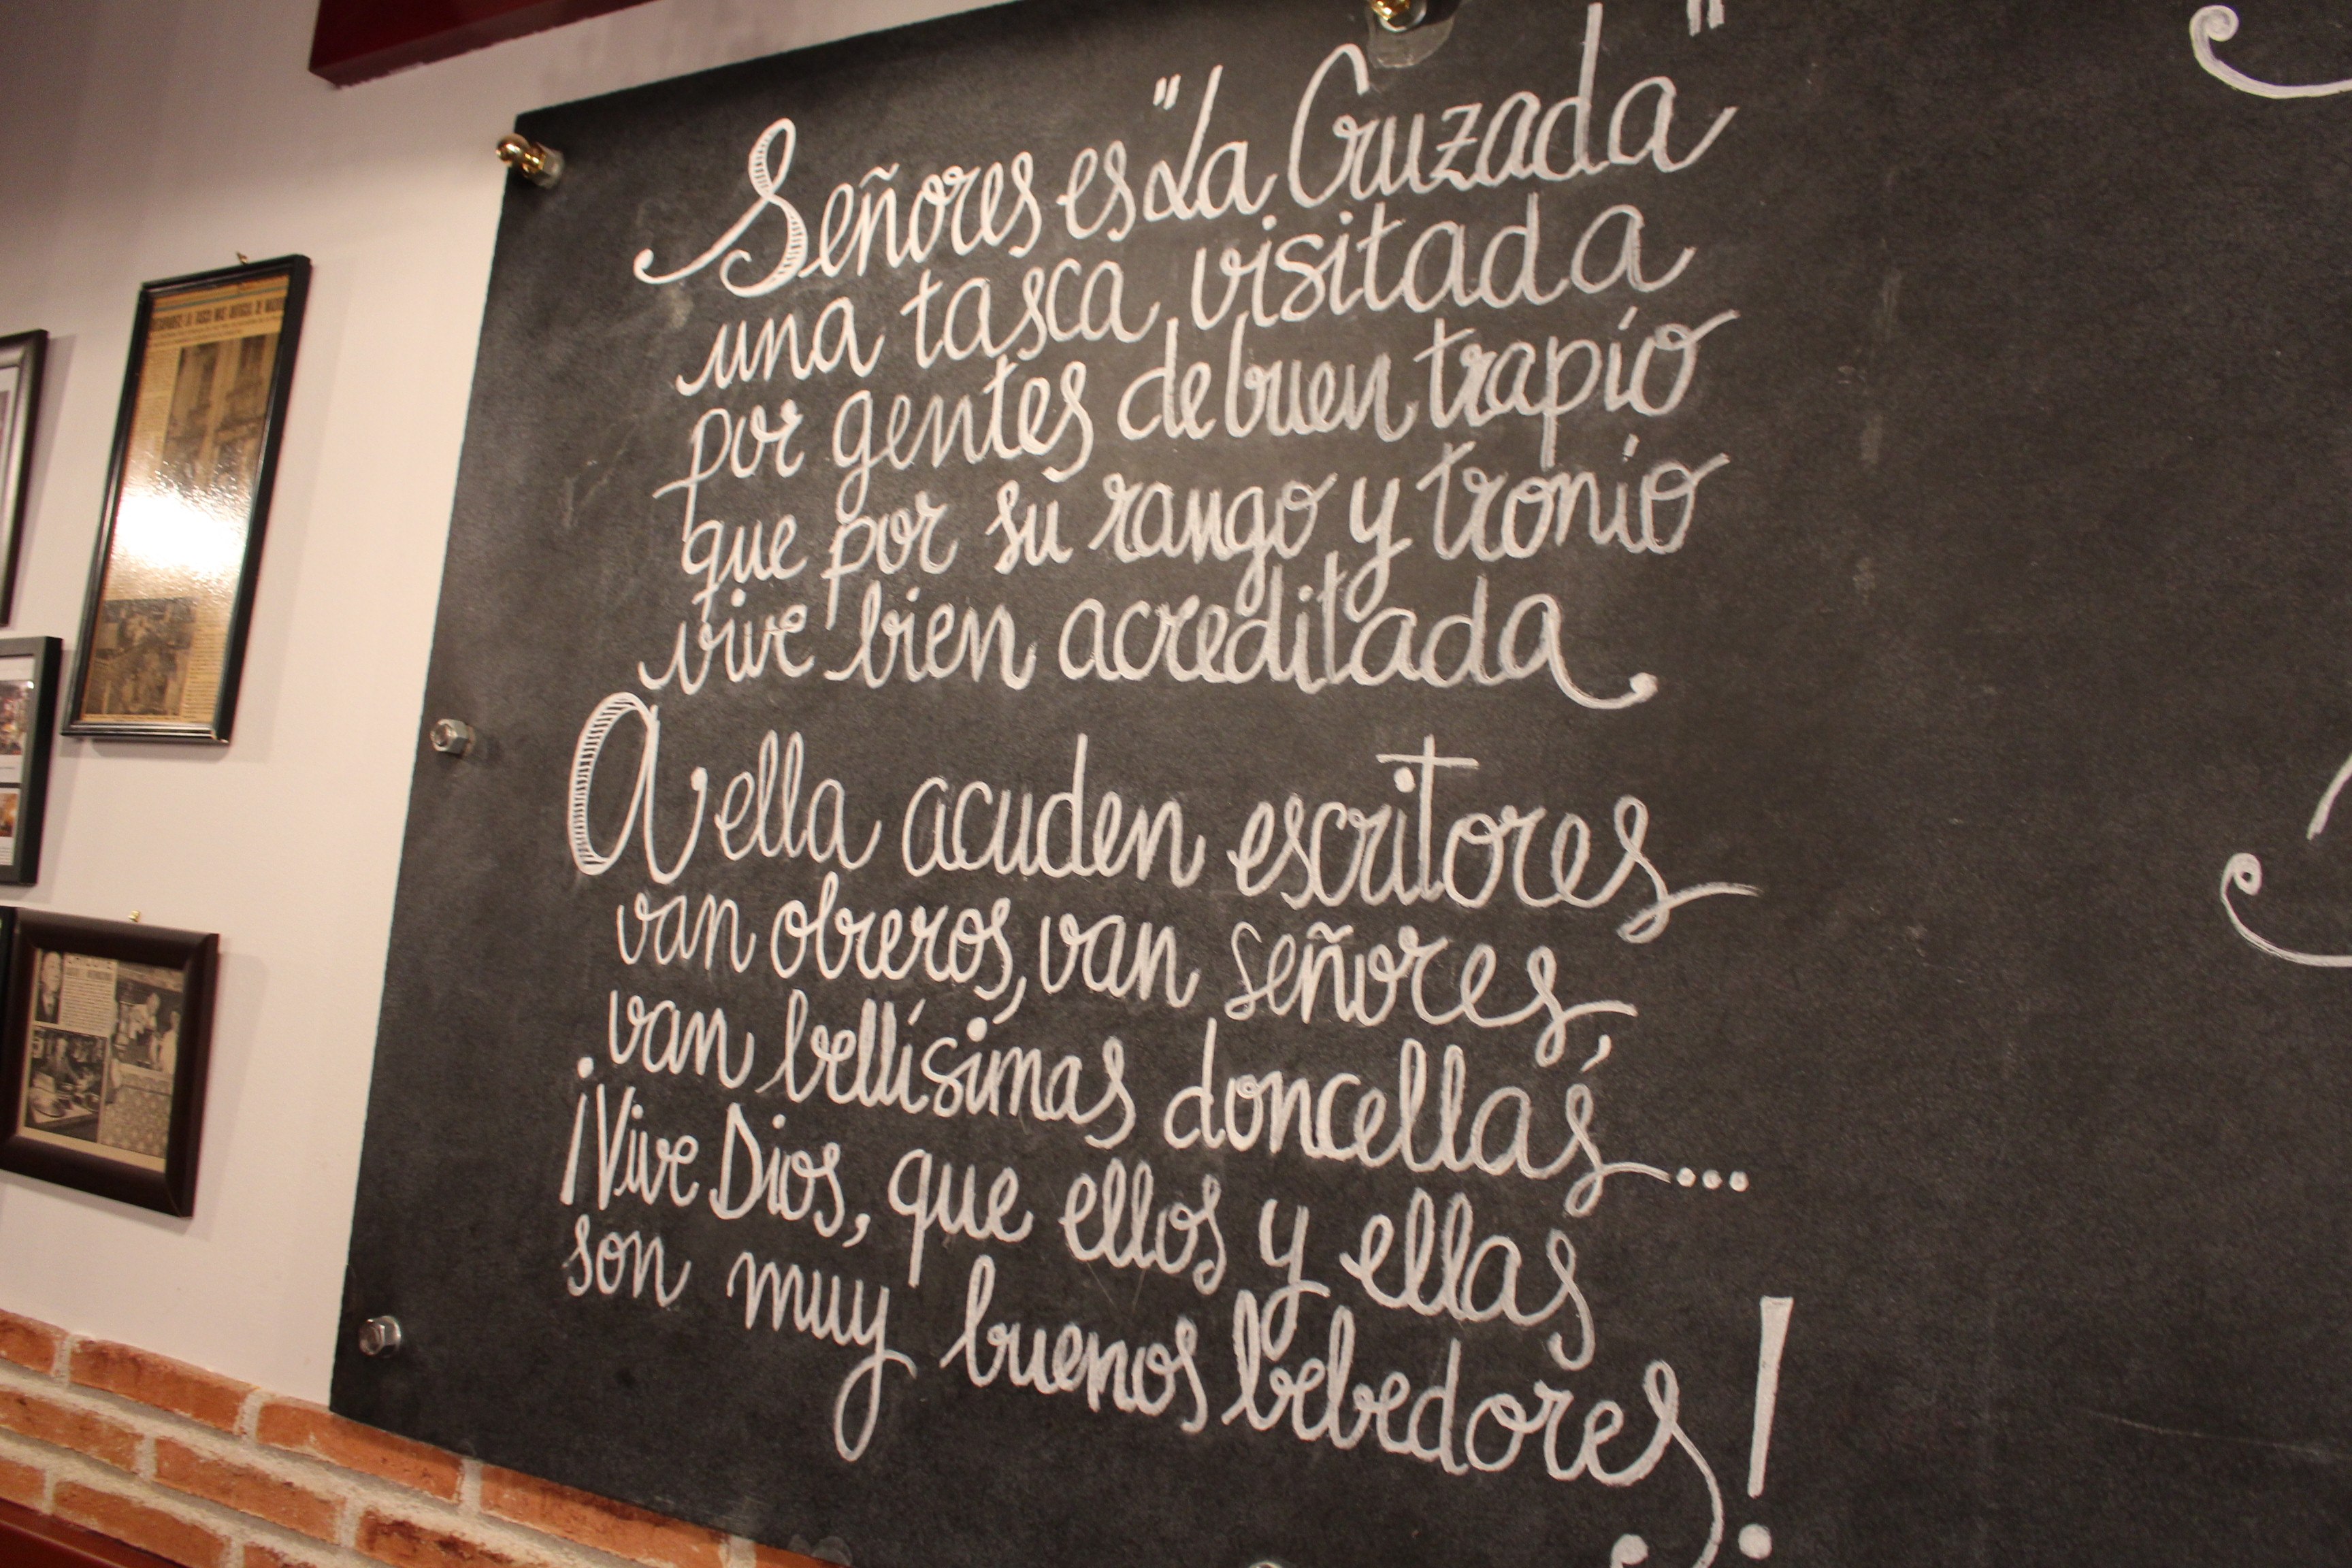 Señores es "La Cruzada"
una tasca visitada
por gentes de buen trapío
que por su rango y tronío
vive bien acreditada.
A ella acuden escritores
van obreros, van señores,
van bellísimas doncellas...
¡Vive Dios, que ellos y ellas
son muy buenos bebedores!